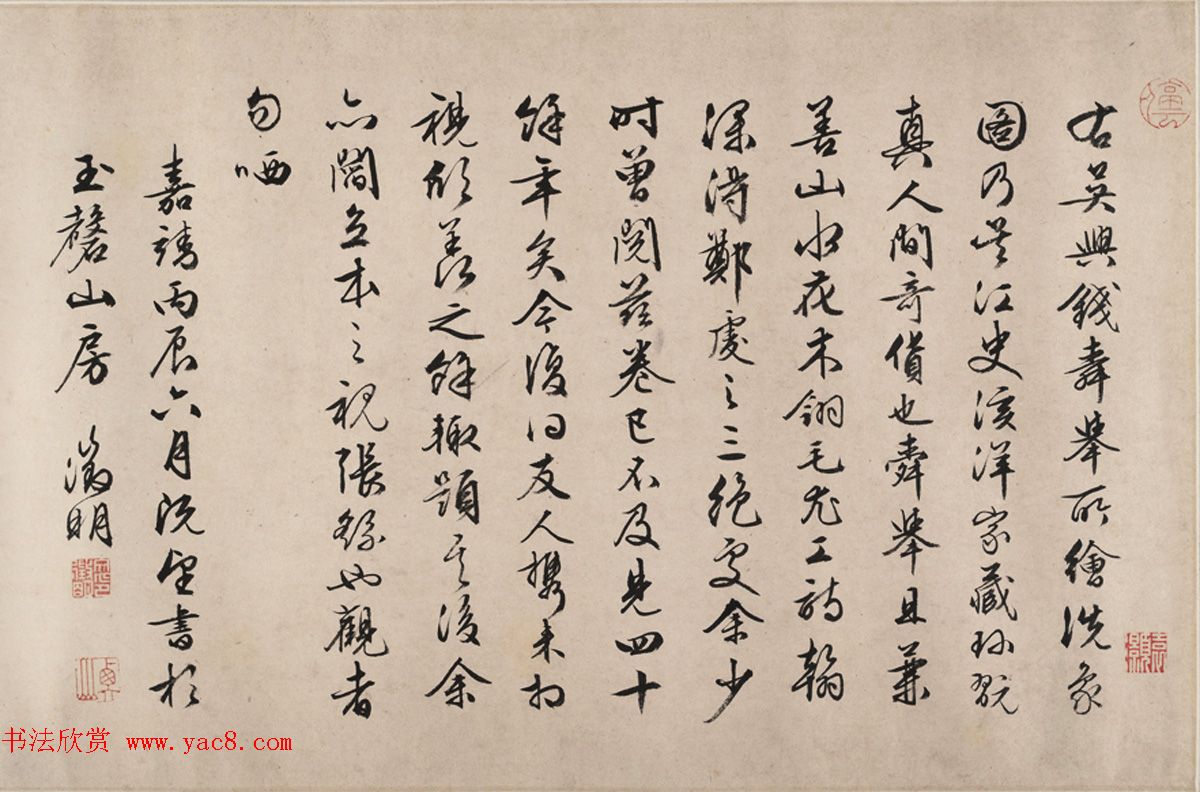 右吴興錢舜舉所繪洗象
圖乃吴江史溪洋家藏珎翫
真人間奇貨也舜舉且兼
善山水花木翎毛尤工詩翰
深得鄭虔之三絶余少
时曾閲兹卷已不及見四十
餘年矣今復同友人携来相
視欣羨之餘輙題其後余
亦閻立本之視張繇也觀者
勿哂
嘉靖丙辰六月既望書於
玉磬山房 徵明
书法欣赏 www.yac8.com